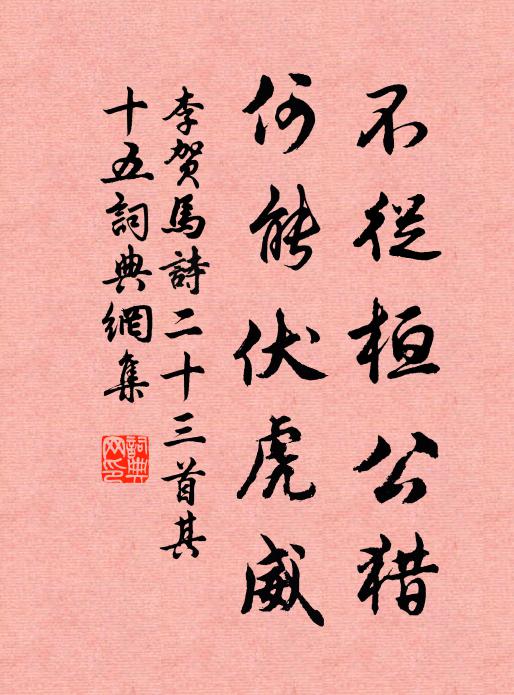 不從桓公猎
何能伏虎威
李贺馬詩二十三首其
十五詞典網集
詞典
网印